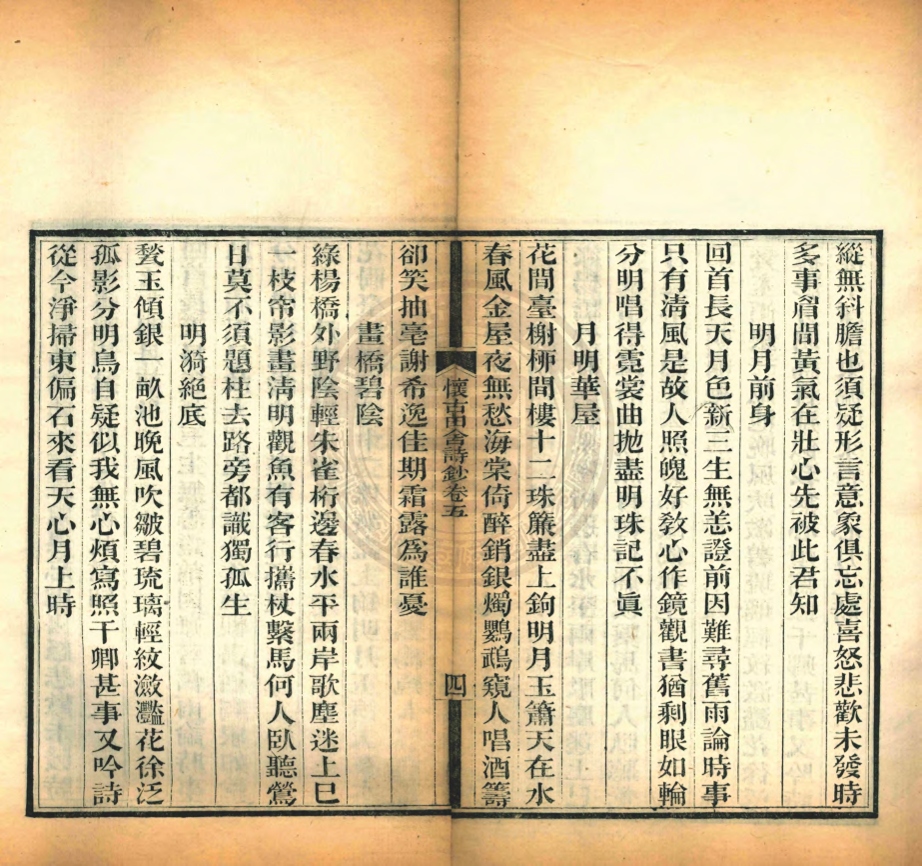 縱無斜膽也須疑形言意象俱忘處喜怒悲歡未發時
多事眉間黃氣在壯心先被此君知
明月前身
回首長天月色新三生無恙證前因難尋舊雨論時事
只有淸風是故人照魄好敎心作鏡觀書猶剩眼如輪
分明唱得霓裳曲抛盡明珠記不眞
月明華屋
花間臺榭栁間樓十二珠簾盡上鉤明月玉簫天在水
春風金屋夜無愁海棠倚醉銷銀燭鸚鵡窺人唱酒籌
懷古田舍詩鈔卷五
四
卻笑抽毫謝希逸佳期霜露爲誰憂
畫橋碧陰
綠楊橋外野陰輕朱雀桁邊春水平兩岸歌塵迷上巳
一枝帘影畫淸明觀魚有客行攜杖繫馬何人臥聽鶯
日莫不須題柱去路旁都識獨孤生
明漪絶底
甃玉傾銀一畝池晚風吹皺碧琉璃輕紋瀲灩花徐泛
孤影分明鳥自疑似我無心煩寫照干卿甚事又吟詩
從今淨掃東偏石來看天心月上時